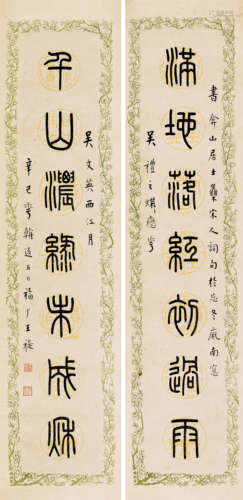 滿地落紅初過雨
書弇山居士集宋人詞句於忍冬廎南窗
吳禮之蝶戀花
千山濃綠未成秋
吳文英西江月
辛巳 五日福厂王禔